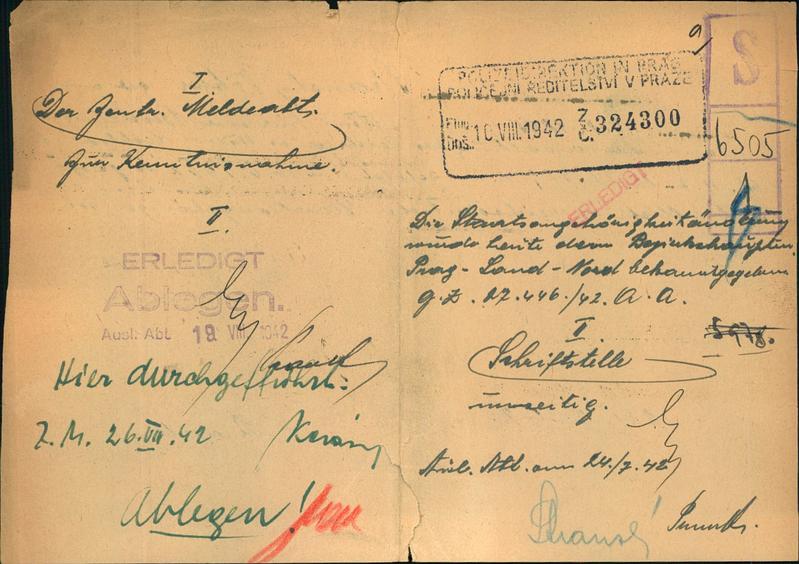 I
Der Zentr. Meldeabt.
zur Kenntnisnahme.
II.
ERLEDIGT
Ablegen.
Ausl. Abt. 19 VIII. 1942
Hier durchgeführt.
Z.M. 26.VIII.42
Ablegen!
POLIZEIDIREKTION IN PRAG
POLICEJNÍ ŘEDITELSTVÍ V PRAZE
Eing.
Doš. 10.VIII.1942 Z. Č. 324300
S
6505
ERLEDIGT
Die Staatsangehörigkeitsänderung
wurde heute dem Bezirkshauptm.
Prag-Land-Nord bekanntgegeben
g.Z. 27.446./42. A.A.
5978.
II.
Schriftstelle
Ausl. Abt. am 24./7.42